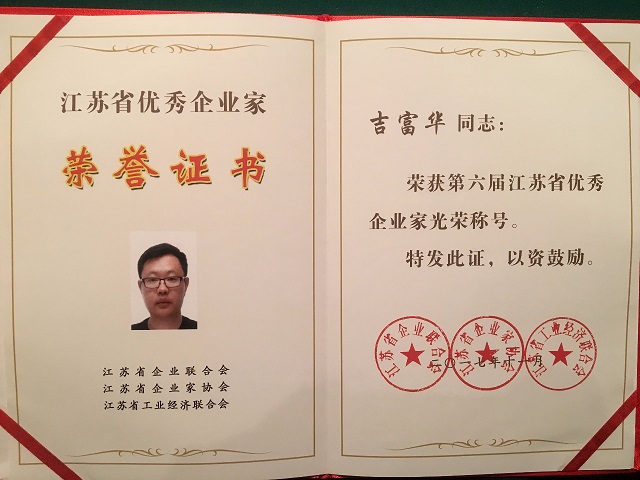 江苏省优秀企业家
荣誉证书
江苏省企业联合会
江苏省企业家协会
江苏省工业经济联合会
吉富华 同志：
荣获第六届江苏省优秀
企业家光荣称号。
特发此证，以资鼓励。
江苏省企业联合会
江苏省企业家协会
江苏省工业经济联合会
二〇一七年十一月